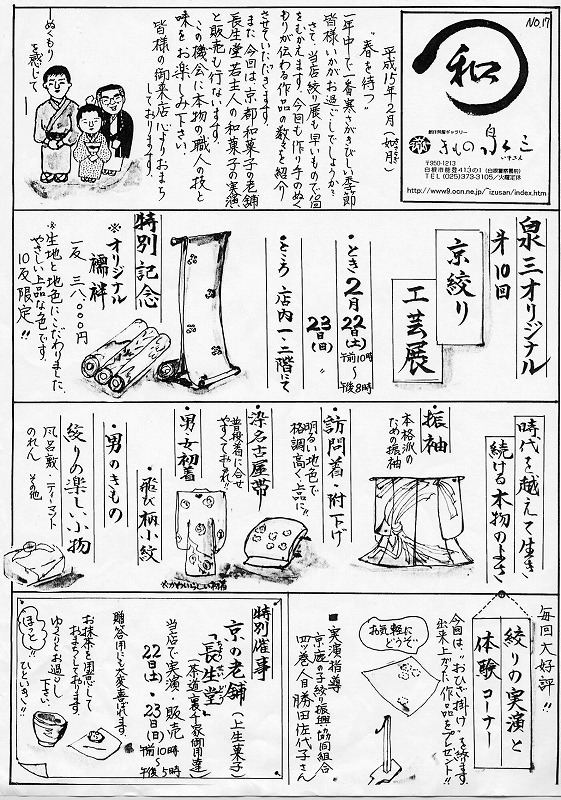 NO.17
和
創作呉服ギャラリー
きもの 泉三
いずさん
〒950-1213
白根市能登413の1(白根警察署前)
TEL(025)373-3105/火曜定休
http://www9.ocn.ne.jp/~izusan/index.htm
平成15年2月(如月)
きさらぎ
"春を待つ"
一年中で一番寒さがきびしい季節
皆様いかがお過ごしでしょうか?
さて、当店絞り展も早いもので10回
をむかえます。今回も作り手のぬく
もりが伝わる作品の数々を紹介
させていただきます。
また今回は、京都和菓子の老舗
長生堂若主人の和菓子の実演
と販売も行ないます。
この機会に本物の職人の技と
味をお楽しみ下さい。
皆様の御来店心よりおまち
しております。
―ぬくもり
を感じて―
泉三オリジナル
第10回
京絞り
工芸展
・とき 2月22(土) 午前10時〜
23(日) 午後8時
・ところ 店内一・二階にて
特別記念
※オリジナル
襦袢
一反 三八、〇〇〇円
※生地と地色にこだわりました。
やさしい上品な色です。
10反限定!!
時代を越えて生き
続ける本物のよさ
・振袖
本格派の
ための振袖
・訪問着・附下げ
明るい地色で
格調高く上品に!!
・染名古屋帯
普段着に合せ
やすくておしゃれ!!
・男・女初着
※かわいらしい初着
・飛び柄小紋
・男のきもの
絞りの楽しい小物
風呂敷・ティーマット
のれん その他
毎回大好評!!
絞りの実演と
体験コーナー
今回は、"おひざ掛け"を絞ります。
出来上がった作品をプレゼント!!
お気軽に
どうぞ。
■実演指導
京鹿の子絞り振興協同組合
四ツ巻人目 勝田佐代子さん
特別催事
京の老舗(上生菓子)
「長生堂」(茶道裏千家御用達)
ちょうせいどう
当店で実演・販売
22日(土)・23日(日) 午前10時〜
午後5時
贈答用にも大変喜ばれます。
お抹茶を用意して
おまちしております。
ゆっくりお過し
下さい。
ほっと!!
ひといき!!